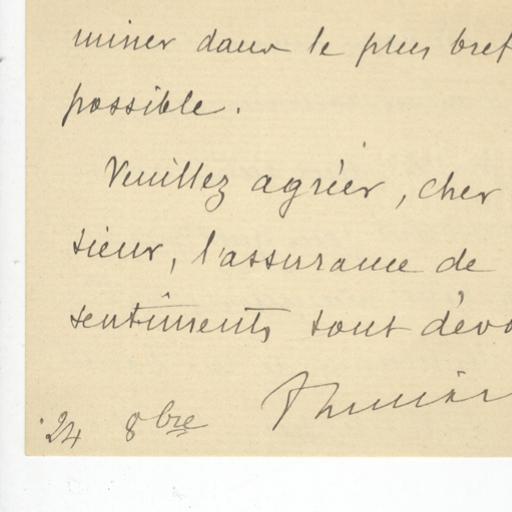 miner dans le plus bref
possible.
Veuillez agréer, cher
sieur, l'assurance de
sentiments tout dévo
24 8bre